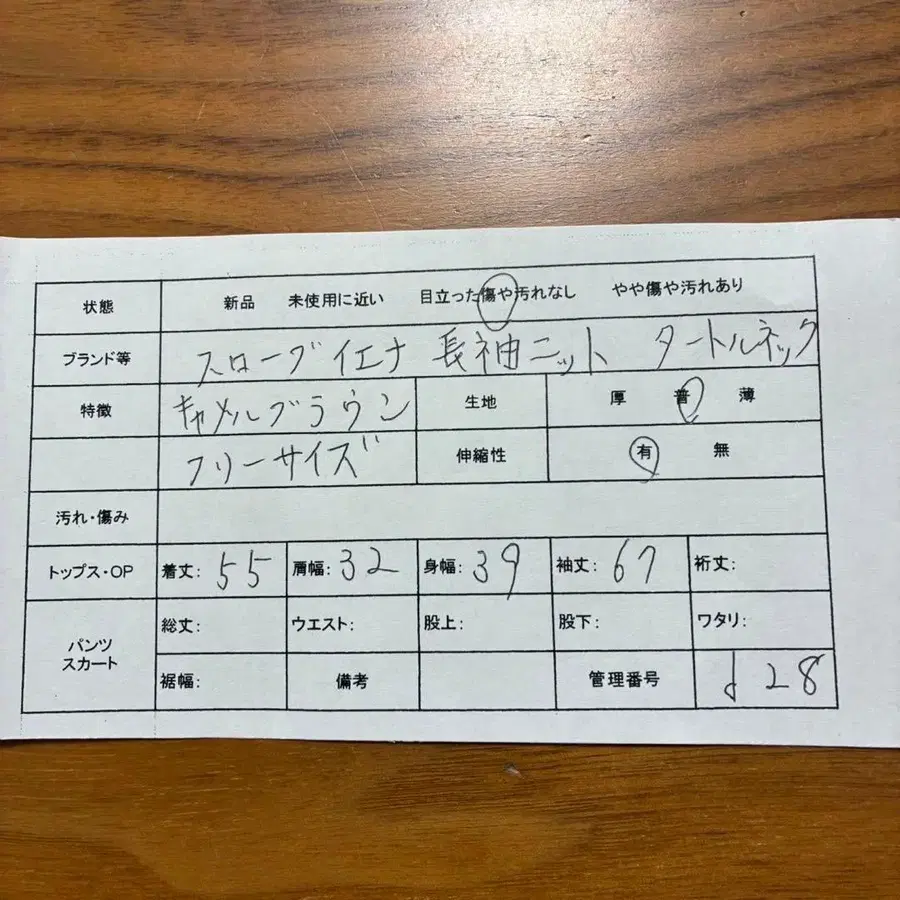 状態 新品 未使用に近い 目立った傷や汚れなし やや傷や汚れあり
ブランド等 スローブイエナ 長袖ニット タートルネック
特徴 キャメルブラウン 生地 厚 普 薄
フリーサイズ 伸縮性 有 無
汚れ・傷み
トップス・OP 着丈: 55 肩幅: 32 身幅: 39 袖丈: 67 裄丈:
パンツ スカート 総丈: ウエスト: 股上: 股下: ワタリ:
裾幅: 備考 管理番号 d 28